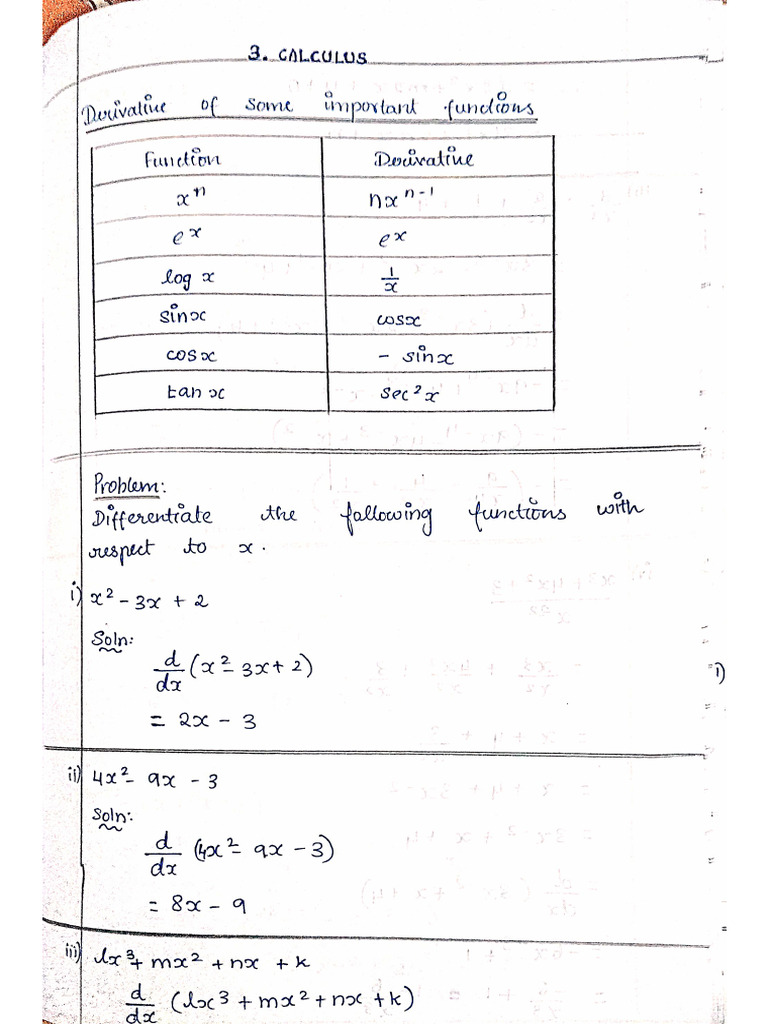 3. CALCULUS
Derivative of some important functions
Function Derivative
xⁿ nxⁿ⁻¹
eˣ eˣ
log x 1/x
sinx cosx
cosx - sinx
tan x sec²x
Problem:
Differentiate the following functions with
respect to x.
i) x² - 3x + 2
Soln:
d/dx (x² - 3x + 2)
= 2x - 3
i)
ii) 4x² - 9x - 3
Soln:
d/dx (4x² - 9x - 3)
= 8x - 9
iii) lx³ + mx² + nx + k
d/dx (lx³ + mx² + nx + k)